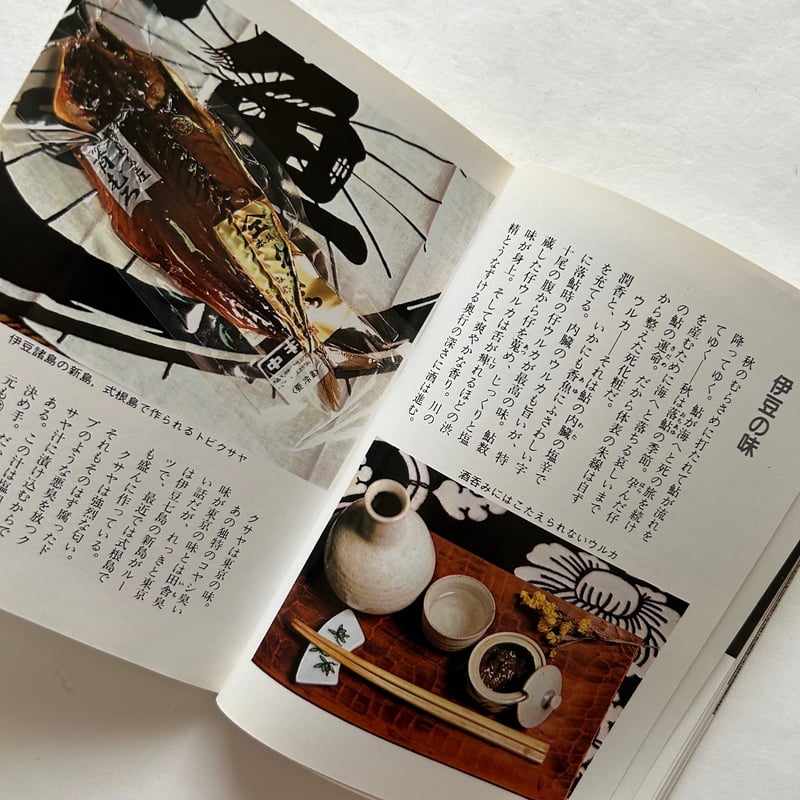 伊豆の味
秋のむらさめに打たれ、鮎が流れを
降ってゆく。鮎が海へと死の旅を続け
てゆく――秋は落鮎の季節。孕んだ仔
を産むために海へと落ちる哀しいまで
の鮎の運命。だから体表の朱線は自ず
から整った死化粧だ。
ウルカ――それは鮎の内臓の塩辛で
潤香と、いかにも香魚にふさわしい字
を充てる。内臓のウルカも旨いが、特
に落鮎時の仔ウルカが最高の味。鮎数
十尾の腹から仔を蒐め、じっくりと塩
蔵した仔ウルカは舌が痺れるほどの渋
味が身上。そして爽やかな香り。川の
精とうなずける奥行の深さに酒は進む。
酒呑みにはこたえられないウルカ
伊豆諸島の新島，式根島で作られるトビクサヤ
クサヤは東京の味。
あの独特のコヤシ臭い
味が東京の味とは田舎臭
い話だが、れっきと東京
は伊豆七島の新島がルー
ツで、最近では式根島で
も盛んに作っている。
クサヤは強烈な匂い。
それもそのはず腐ったド
ブのような悪臭を放つク
サヤ汁に漬け込むからで
ある。この汁は塩
決め手。だ
元も